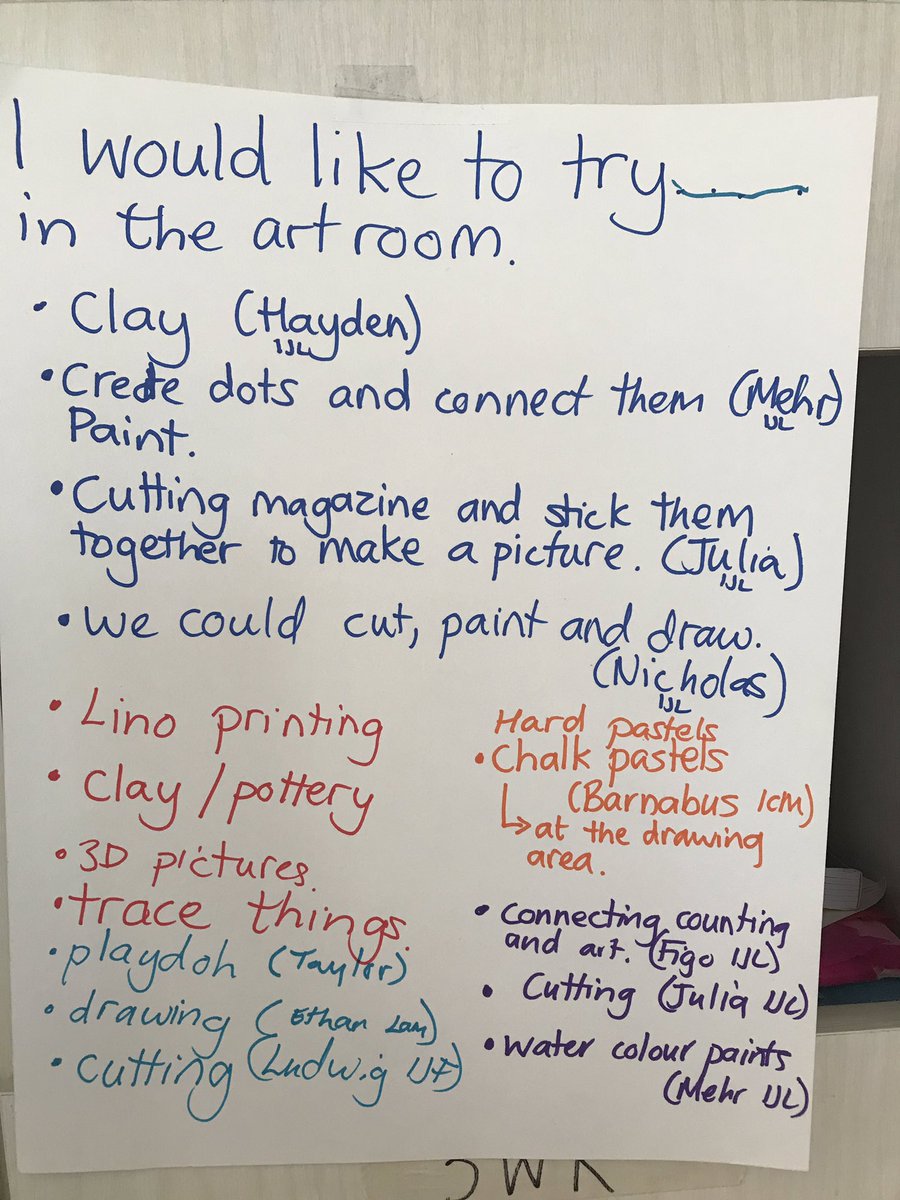 I would like to try
in the art room.
• Clay (Hayden)
1JL
• Create dots and connect them (Mehr)
1JL
Paint.
• Cutting magazine and stick them
together to make a picture. (Julia)
1JL
• We could cut, paint and draw.
(Nicholas)
1JL
• Lino printing
• Clay/pottery
• 3D pictures.
• trace things.
• playdoh (Taylor)
• drawing (Ethan Lam)
• cutting (Ludwig
Hard pastels
• Chalk pastels
(Barnabus 1CM)
↳ at the drawing
area.
• connecting counting
and art. (Figo 1JL)
• Cutting (Julia 1JL)
• water colour paints
(Mehr 1JL)